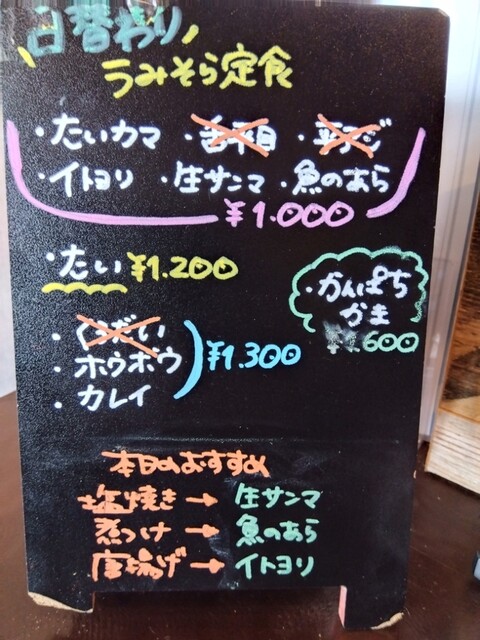 日替わり
うみそら定食
・たいカマ ・舌平目 ・平アジ
・イトヨリ ・生サンマ ・魚のあら
¥1.000
・たい ¥1.200
・かんぱち
かま
¥1.600
・くろだい
・ホウホウ
・カレイ
¥1.300
本日のおすすめ
塩焼き→生サンマ
煮つけ→魚のあら
唐揚げ→イトヨリ